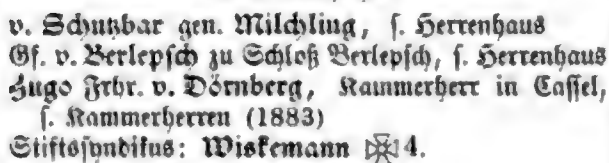 v. Schutzbar gen. Milchling, s. Herrenhaus
Gf. v. Berlepsch zu Schloß Berlepsch, s. Herrenhaus
Hugo Frhr. v. Dörnberg, Kammerherr in Cassel,
s. Kammerherren (1883)
Stiftssyndikus: Wiskemann ✠4.